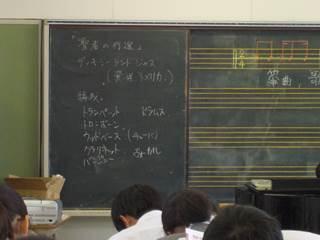 「聖者の行進」
ディキシーランドジャズ
編成
トランペット ドラムス
トロンボーン
ウッドベース (チューバ)
クラリネット
バンジョー
箏曲、